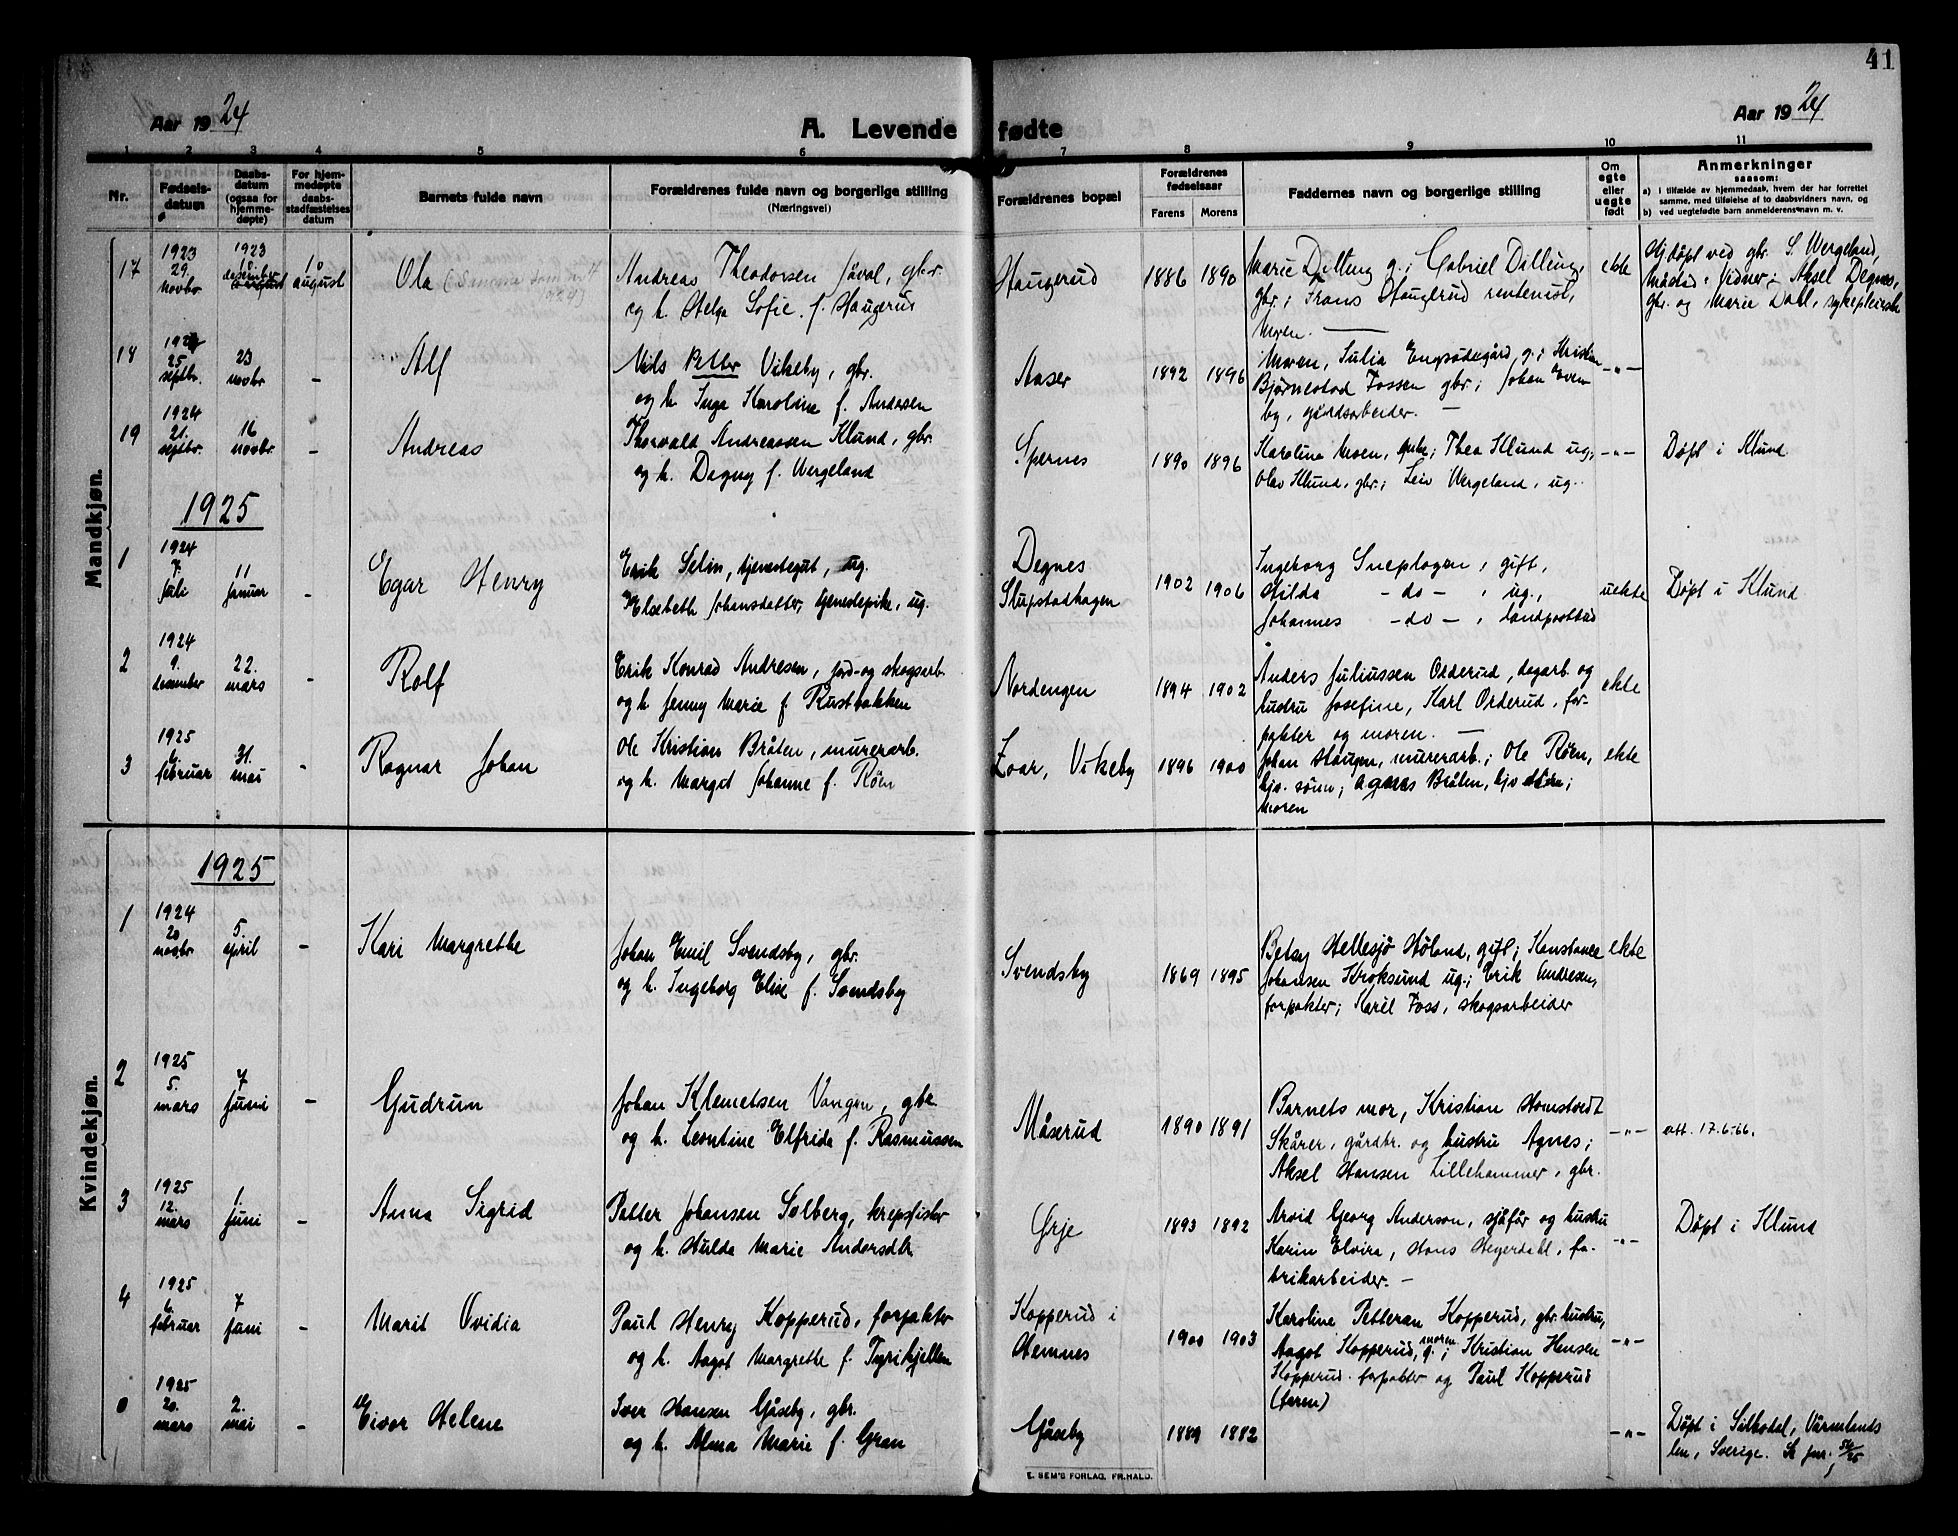 41
Aar 1924
A. Levende fødte
Aar 1924
1 2 3 4 5 6 7 8 9 10 11
Nr.
Fødsels-
datum
Daabs-
datum
(ogsaa for
hjemme-
døpte)
For hjem-
medøpte
daabs-
stadfæstelses
datum
Barnets fulde navn
Forældrenes fulde navn og borgerlige stilling
(Næringsvei)
Forældrenes bopæl
Forældrenes
fødselsaar
Farens Morens
Faddernes navn og borgerlige stilling
Om
egte
eller
uegte
født
Anmerkninger
saasom:
a) i tilfælde av hjemmedaab, hvem der har forrettet
samme, med tilføielse af to daabsvidners navn, og
b) ved uegtefødte barn anmelderens navn m. v.
Mandkjøn.
17
1923
29.
novbr.
1923
desember
august
Ola (Samme som nr 4
1924)
Andreas Theodorsen Jåval, gbr.
og h. Helga Sofie f. Haugerud
Haugerud
1886 1890
Marie Dilling g.; Gabriel Dilling,
gbr; Frans Haugerud rentenist,
Moren.
ekte
Hjdøpt ved gbr. S. Wergeland,
Måstad. Vidner: Aksel Degnes,
gbr. og Marie Dahl, sykepleierske
18
1924
25
septbr.
23
novbr
-
Alf
Nils Petter Vikeby, gbr.
og h. Inga Karoline f. Andersen
Aaser
1892 1896
Moren, Julia Engsødegård, g.; Kristian
Bjørnestad Fossen gbr; Johan Even-
by, gårdsarbeider. -
-"-
19
1924
21.
septbr.
16
novbr
-
Andreas
Thorvald Andreassen Klund, gbr.
og h. Dagny f. Wergeland
Spernes
1890 1896
Karoline Moen, enke; Thea Klund ug,
Olav Klund, gbr; Leiv Wergeland, ug.
-"-
Døpt i Klund
1925
1
1924
7.
juli
11
januar
Egar Henry
Erik Selin, tjenestegut, ug.
Elsebeth Johansdatter, tjenestepike, ug.
Degnes
Slupstadhagen
1902 1906
Ingeborg Sneplogen, gift,
Hilda - do - , ug.,
Johannes - do - , landpostbud
uekte
Døpt i Klund
2
1924
9.
desember
22.
mars
-
Rolf
Erik Konrad Andresen, jord- og skogsarb.
og h. Jenny Marie f. Rustbakken
Nordengen
1894 1902
Anders Juliussen Orderud, dagarb. og
hustru Josefine, Karl Orderud, for-
pakter og moren. -
ekte
3
1925
6.
februar
31.
mai
-
Ragnar Johan
Ole Kristian Bråten, murerarb.
og h. Margit Johanne f. Røen
Zoar, Vikeby
1896 1900
Johan Haugen, murerarb.; Ole Røen,
hjv. sønn; Agnes Bråten, hjv. datter;
Moren
ekte
Kvindekjøn.
1925
1
1924
20
novbr
5.
april
-
Kari Margrethe
Johan Emil Svendsby, gbr.
og h. Ingeborg Elise f. Svendsby
Svendsby
1869 1895
Betsy Hellesjö Høland, gift; Konstance
Johansen Kroksund ug.; Erik Andresen,
forpakter; Karel Foss, skogsarbeider
ekte
2
1925
5.
mars
7
juni
-
Gudrun
Johan Klemetsen Vangen, gbr
og h. Leontine Elfrida f. Rasmussen
Måserud
1890 1891
Barnets mor, Kristian Homstvedt
Skårer, gårdbr. og hustru Agnes;
Aksel Hansen Lillehammer, gbr.
-"-
att. 17.6.-66.
3
1925
12.
mars
1.
juni
-
Anna Sigrid
Petter Johansen Solberg, krepsfisker
og h. Hulda Marie Andersdtr.
Ørje
1893 1892
Arvid Georg Anderson, sjåfør og hustru
Karin Elvira, Hans Heyerdahl, fa-
brikarbeider. -
-"-
Døpt i Klund
4
1925
6.
februar
7
juni
-
Marit Ovidia
Paul Henry Kopperud, forpakter
og h. Aagot Margrethe f. Tyrihjellen
Kopperud i
Hemnes
1900 1903
Karoline Petteran Kopperud, gbr. hustru,
Aagot Kopperud, moren g.; Kristian Hansen
Kopperud forpakter og Paul Kopperud
(faren)
-"-
0
1925
20.
mars
2.
mai
-
Eivor Helene
Iver Hansen Gåseby, gbr.
og h. Alma Marie f. Gran
Gåseby
1889 1882
-"-
Døpt i Silbodal, Värmlands
len, Sverige. Se jnr. 54/25
E. SEM'S FORLAG, FR.HALD.